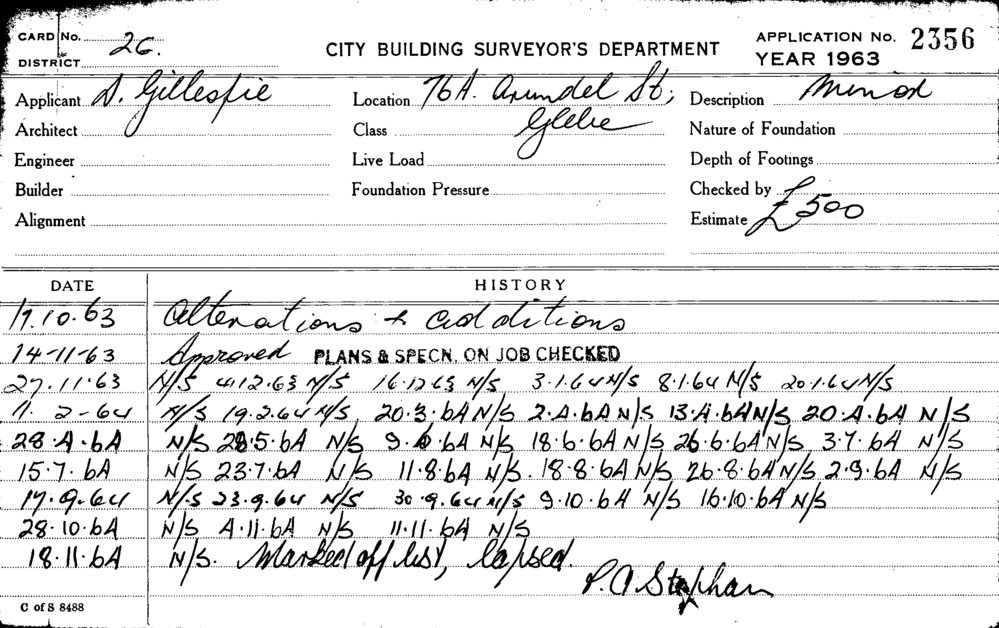 CARD No. 26.
DISTRICT
CITY BUILDING SURVEYOR'S DEPARTMENT
APPLICATION No. 2356
YEAR 1963
Applicant D. Gillespie Location 76A. Arundel St; Description Minor
Architect Class Glebe Nature of Foundation
Engineer Live Load Depth of Footings
Builder Foundation Pressure Checked by
Alignment Estimate £500
DATE HISTORY
17.10.63 Alterations & additions
14-11-63 Approved PLANS & SPECN. ON JOB CHECKED
27.11.63 N/S 4.12.63 N/S 16.12.63 N/S 3.1.64 N/S 8.1.64 N/S 20.1.64 N/S
2-64 N/S 19.2.64 N/S 20.3.64 N/S 2.4.64 N/S 13.4.64 N/S 20.4.64 N/S
28.4.64 N/S 28.5.64 N/S 9.6.64 N/S 18.6.64 N/S 26.6.64 N/S 3.7.64 N/S
15.7.64 N/S 23.7.64 N/S 11.8.64 N/S. 18.8.64 N/S 26.8.64 N/S 2.9.64 N/S
17.9.64 N/S 23.9.64 N/S 30.9.64 N/S 9.10.64 N/S 16.10.64 N/S
28.10.64 N/S 4.11.64 N/S 11.11.64 N/S
18.11.64 N/S. Marked off list, lapsed.
P. A Stephan
C of S 8488